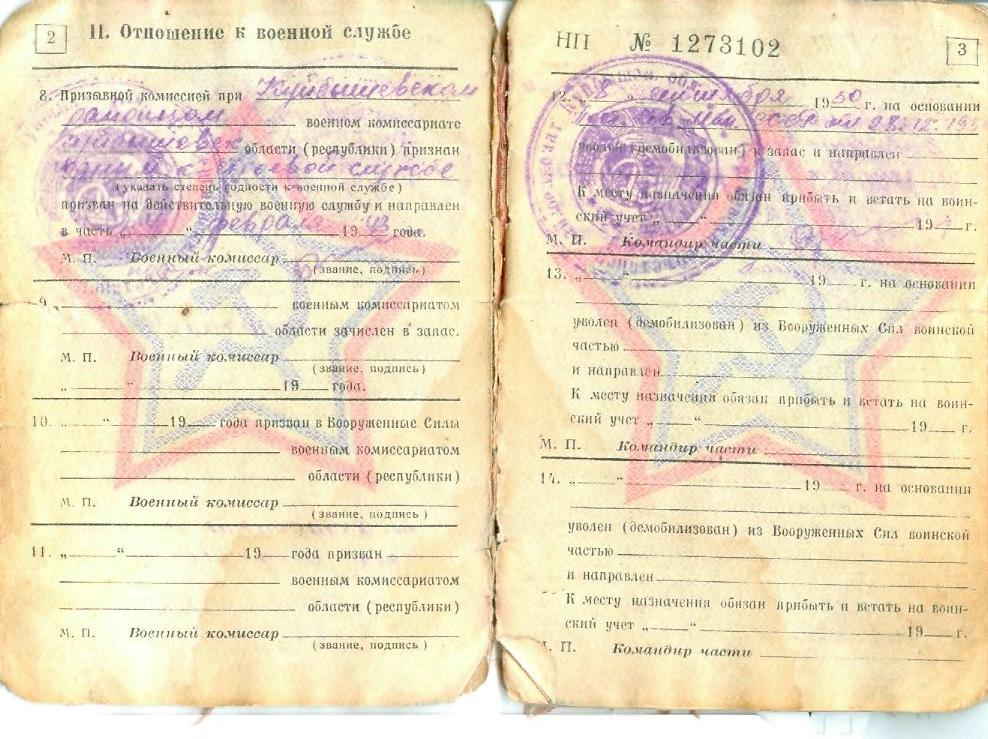 2
II. Отношение к военной службе
8. Призывной комиссией при Куйбышевском
районном военном комиссариате
области (республики) признан
службе
(указать степень годности к военной службе)
призван на действительную военную службу и направлен
в часть „ “ февраля 1943 года.
М. П. Военный комиссар
(звание, подпись)
9. военным комиссариатом
области зачислен в запас.
М. П. Военный комиссар
(звание, подпись)
„ “ 19 года.
10. „ “ 19 года призван в Вооруженные Силы
военным комиссариатом
области (республики)
М. П. Военный комиссар
(звание, подпись)
11. „ “ 19 года призван
военным комиссариатом
области (республики)
М. П. Военный комиссар
(звание, подпись)
НП № 1273102
3
12. 1950 г. на основании
уволен (демобилизован) в запас и направлен
К месту назначения обязан прибыть и встать на воин-
ский учет „ “ 19 г.
М. П. Командир части
13. „ “ 19 г. на основании
уволен (демобилизован) из Вооруженных Сил воинской
частью
и направлен
К месту назначения обязан прибыть и встать на воин-
ский учет „ “ 19 г.
М. П. Командир части
14. „ “ 19 г. на основании
уволен (демобилизован) из Вооруженных Сил воинской
частью
и направлен
К месту назначения обязан прибыть и встать на воин-
ский учет „ “ 19 г.
М. П. Командир части